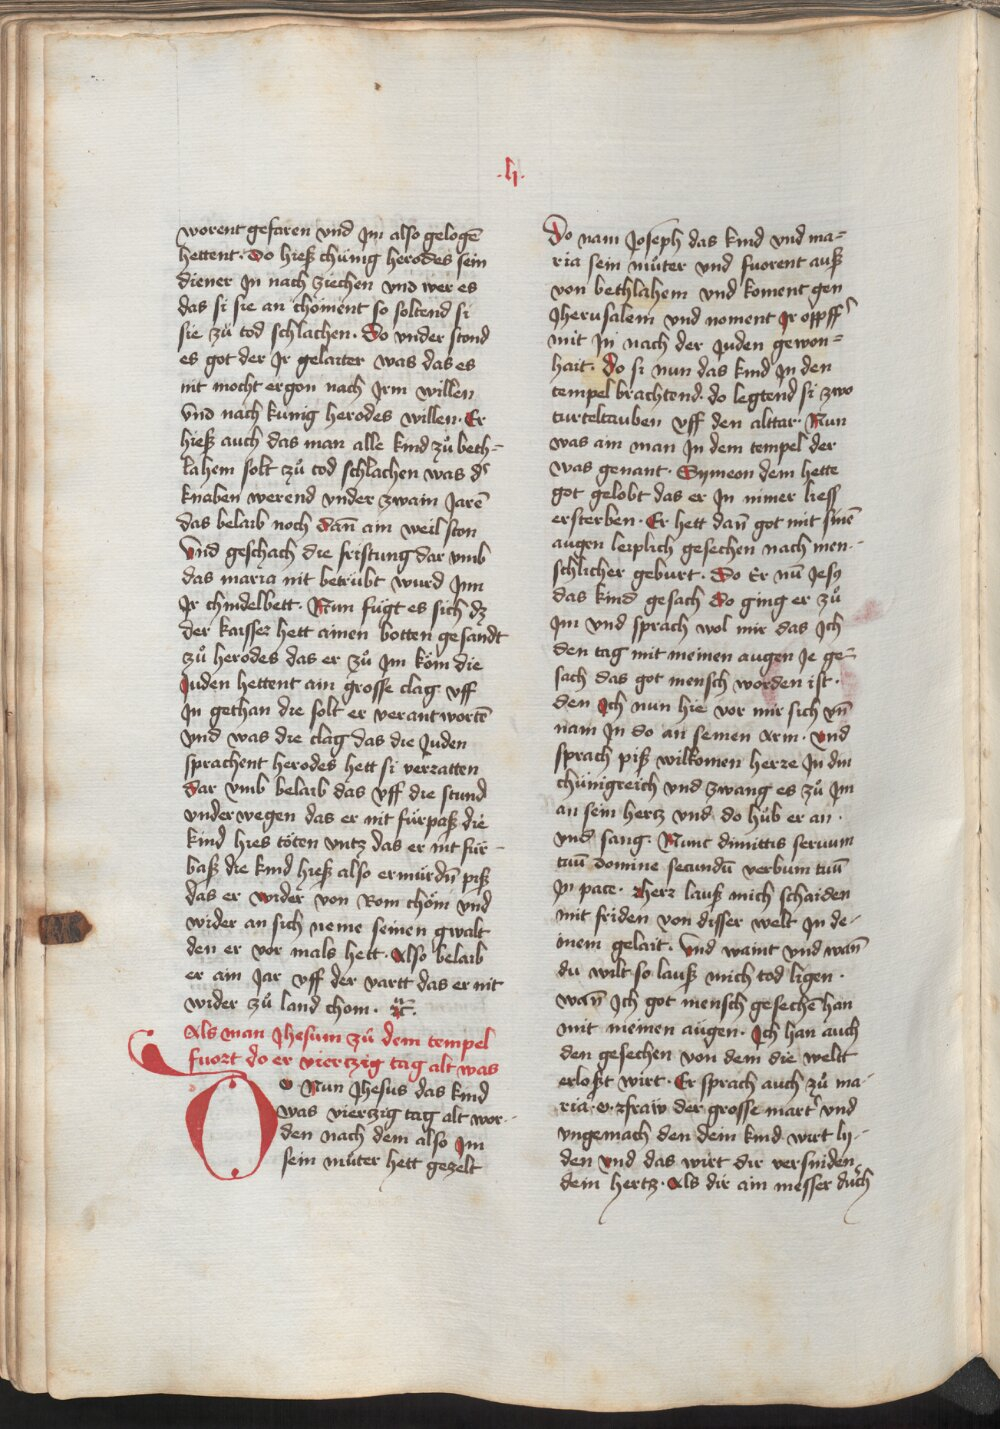 .h.
worent gefaren vnd Jm also gelogē
hettent. Do hieß chúnig herodes sein
diener Jn nach ziechen vnd wer es
das si sie an chöment so soltend si
sie zů tod schlachen. Do vnder stond
es got der Jr gelaiter was das es
nit mocht ergon nach Jrm willen
vnd nach kunig herodes willen. Er
hieß auch das man alle kind zů beth-
lahem solt zů tod schlachen was ds
knaben werend vnder zwain Jarē
das belaib noch dañ ain weil ston
Vnd geschach die fristung dar vmb
das maria nit betrúbt wurd Jnn
Jr chindelbett. Nun fúgt es sich dz
der kaisser hett ainen botten gesandt
zů herodes das er zů Jm köm die
Juden hettent ain grosse clag vff
Jn gethan die solt er verantwortē
vnd was die clag das die Juden
sprachent herodes hett si verratten
dar vmb belaib das vff die stund
vnderwegen das er nit fúrpaß die
kind hies töten vntz das er nit fúr-
baß die kind hieß also ermúrdñ piß
das er wider von Rom chöm vnd
wider an sich neme seinen gwalt
den er vor mals hett. Also belaib
er ain Jar vff der vartt das er nit
wider zů land chom.
Als man Jhesum zů dem tempel
fuort do er viertzig tag alt was
Do Nun Jhesus das kind
was vierzig tag alt wor-
den nach dem also Jm
sein můter hett gezelt
Do nam Joseph das kind vnd ma-
ria sein můter vnd fuorent auß
von bethlahem vnd koment gen
Jherusalem vnd noment Jr opff
mit Jn nach der Juden gewon-
hait. Do si nun das kind Jn den
tempel brachtend. do legtend si zwo
turteltauben vff den alttar. Nun
was ain man Jn dem tempel der
was genant. Symeon dem hette
got gelobt das er Jn nimer liess
ersterben. Er hett dañ got mit sinē
augen leiplich gesechen nach men-
schlicher geburt. Do Er nū Jesꝰ
das kind gesach do ging er zů
Jm vnd sprach wol mir das Jch
den tag mit meinen augen Je ge-
sach das got mensch worden ist.
den Jch nun hie vor mir sich vñ
nam Jn do an seinen arm. vnd
sprach piß wilkomen herre Jn din
chúnigreich vnd zwang es zů Jm
an sein hertz vnd do hůb er an.
vnd sang. Nunc dimittis seruum
tuū domine secundū verbum tuū
Jn pace. herr lauß mich schaiden
mit friden von disser welt Jn de-
inem gelait. Vnd waint vnd wañ
du wilt so lauß mich tod ligen.
wañ Jch got mensch gesechē han
mit meinen augen. Jch han auch
den gesechen von dem die weltt
erloßt wirt. Er sprach auch zů ma-
ria. o. fraw der grosse mart vnd
vngemach den dein kind wirt ly-
den vnd das wirt dir versniden
dein hertz. Als dir ain messer durch